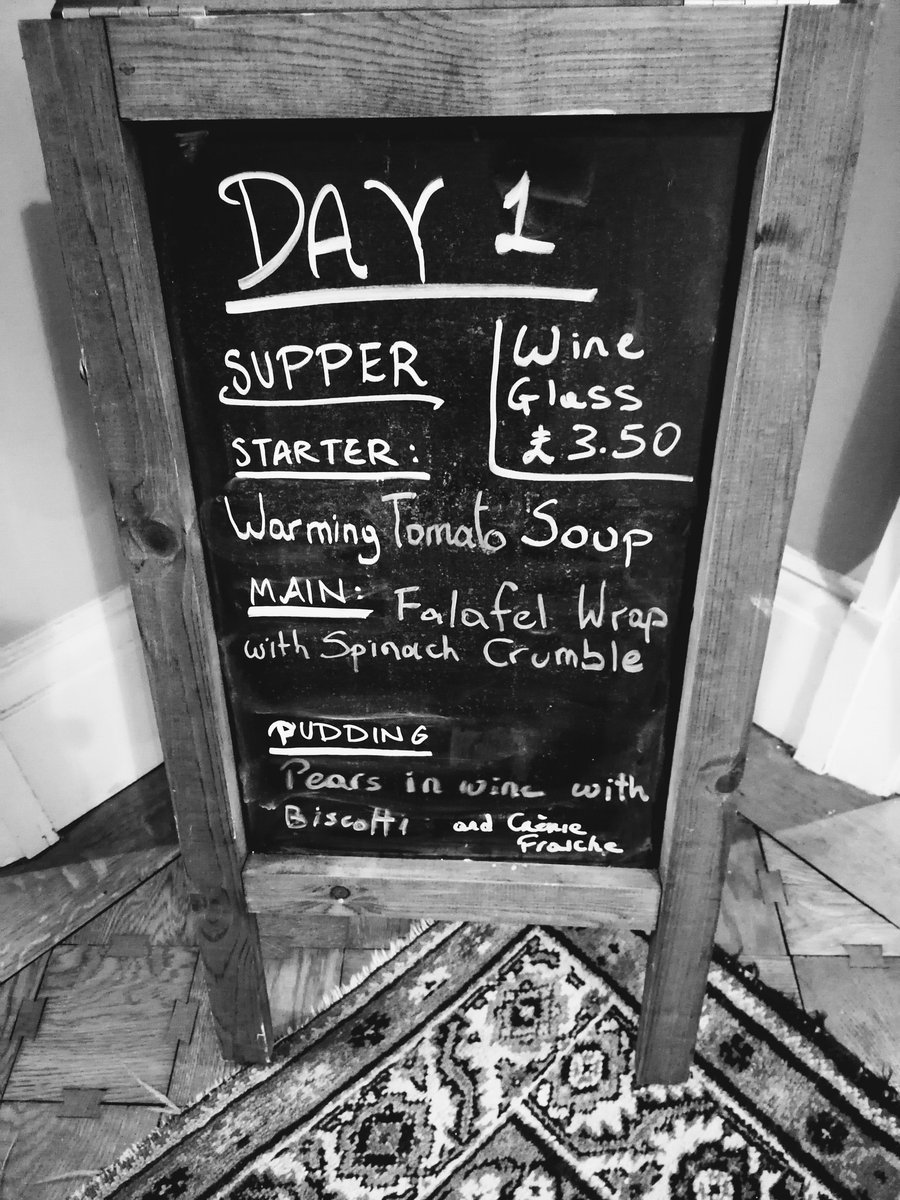 DAY 1
SUPPER
Wine
Glass
£3.50
STARTER:
Warming Tomato Soup
MAIN: Falafel Wrap
with Spinach Crumble
PUDDING
Pears in wine with
Biscotti and Crème
Fraiche